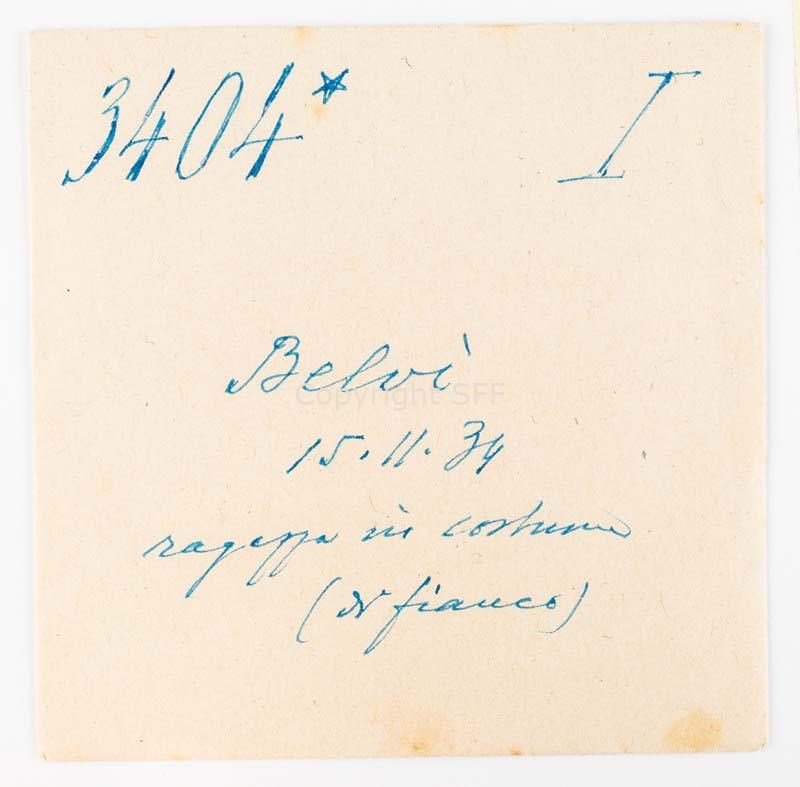 3404* I
Belvì
Copyright SFF
15.11.34
ragazza in costume
(di fianco)